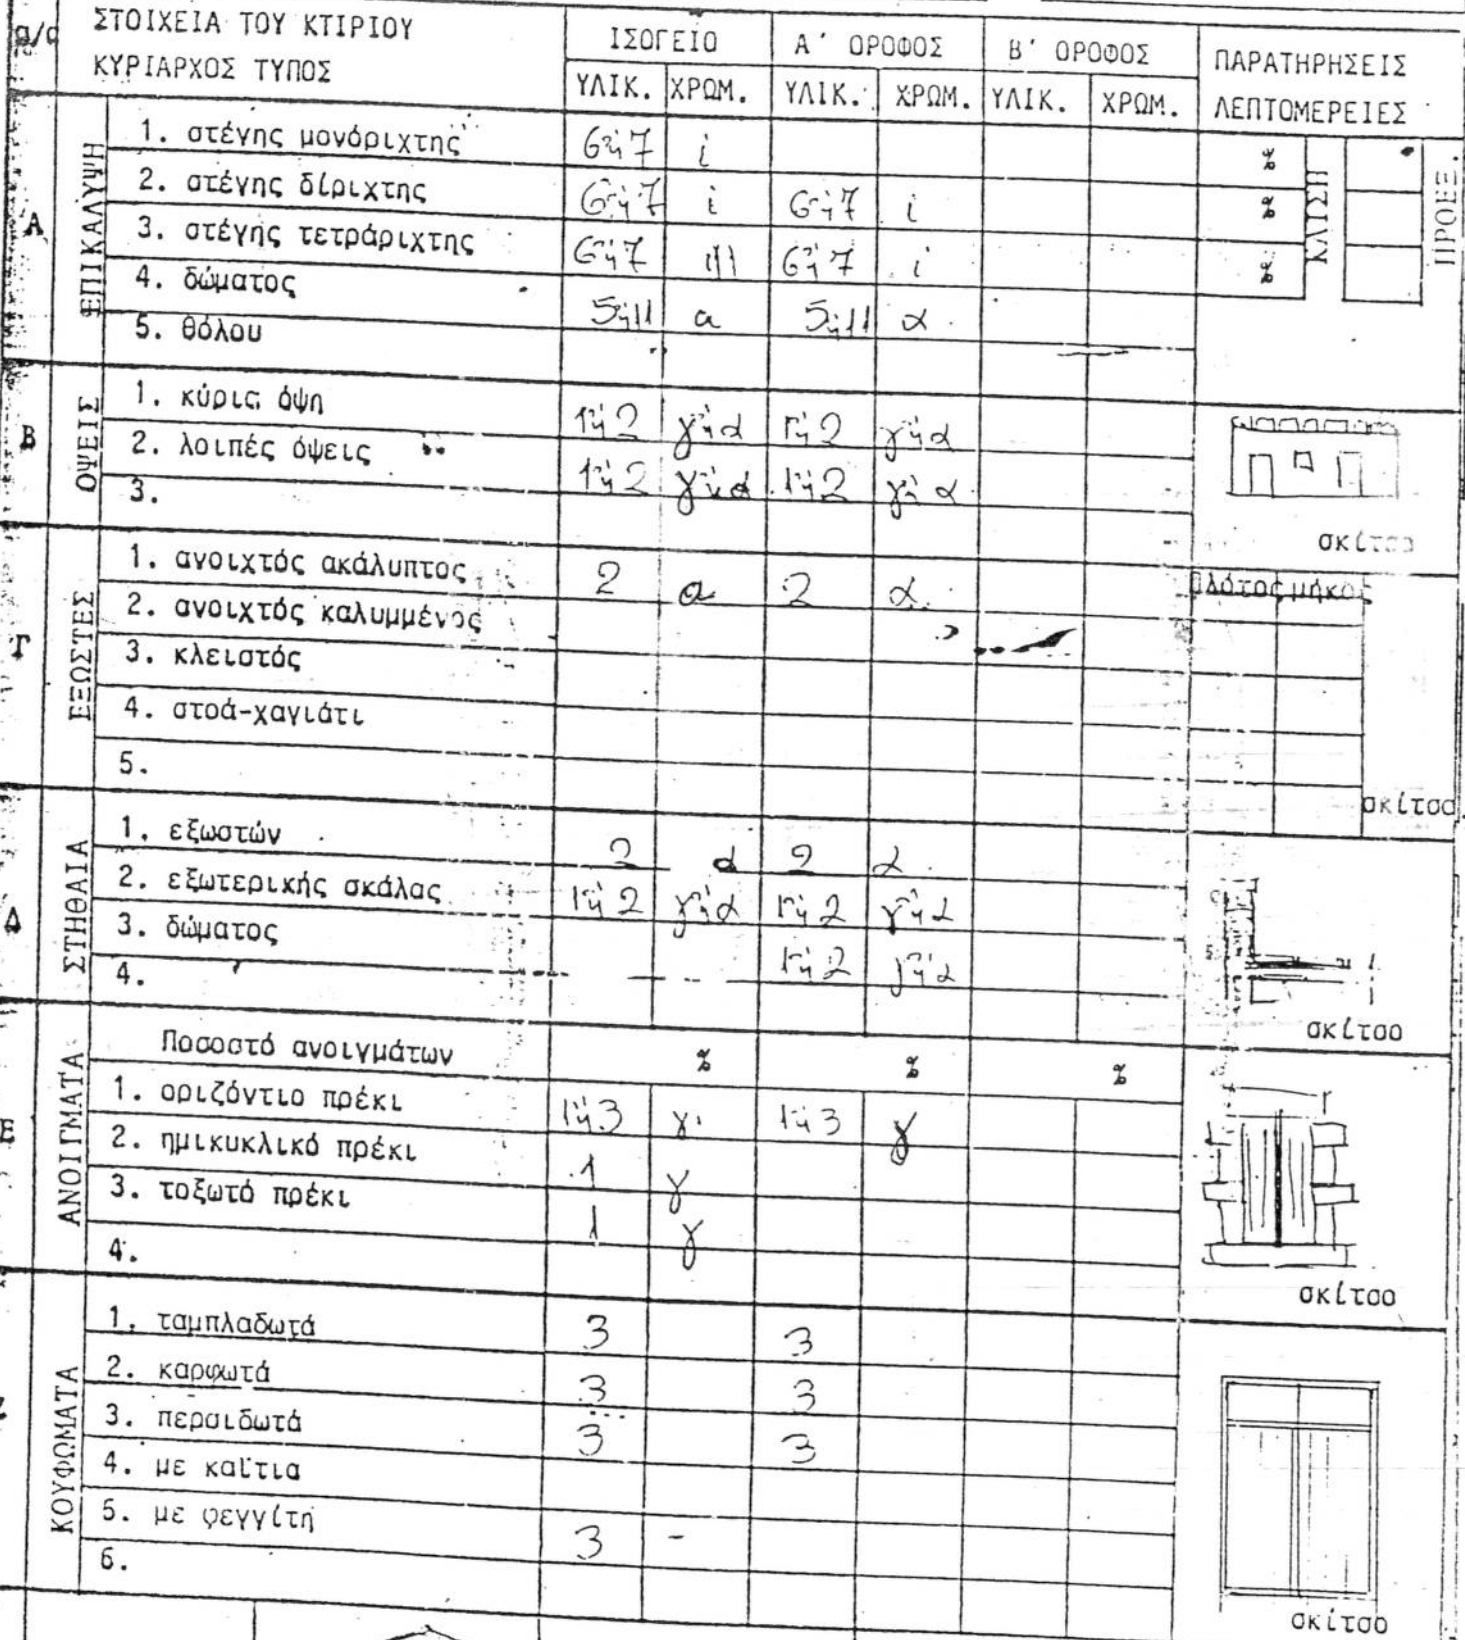 α/α ΣΤΟΙΧΕΙΑ ΤΟΥ ΚΤΙΡΙΟΥ ΙΣΟΓΕΙΟ Α' ΟΡΟΦΟΣ Β' ΟΡΟΦΟΣ ΠΑΡΑΤΗΡΗΣΕΙΣ
ΚΥΡΙΑΡΧΟΣ ΤΥΠΟΣ ΥΛΙΚ. ΧΡΩΜ. ΥΛΙΚ. ΧΡΩΜ. ΥΛΙΚ. ΧΡΩΜ. ΛΕΠΤΟΜΕΡΕΙΕΣ
Α ΕΠΙΚΑΛΥΨΗ
1. στέγης μονόριχτης 6ή7 i %
2. στέγης δίριχτης 6ή7 i 6ή7 i %
3. στέγης τετράριχτης 6ή7 6ή7 i %
ΚΛΙΣΗ
ΠΡΟΕΞ.
4. δώματος 5ή11 α 5ή11 α
5. θόλου
Β ΟΨΕΙΣ
1. κύρια όψη 1ή2 γήα 1ή2 γήα
2. λοιπές όψεις 1ή2 γήα 1ή2 γήα
3.
σκίτσο
Γ ΕΞΩΣΤΕΣ
1. ανοιχτός ακάλυπτος 2 α 2 α πλάτος μήκος
2. ανοιχτός καλυμμένος
3. κλειστός
4. στοά-χαγιάτι
5.
σκίτσο
Δ ΣΤΗΘΑΙΑ
1. εξωστών 2 α 2 α
2. εξωτερικής σκάλας 1ή2 γήα 1ή2 γήα
3. δώματος 1ή2 γήα
4.
σκίτσο
Ε ΑΝΟΙΓΜΑΤΑ
Ποσοστό ανοιγμάτων % % %
1. οριζόντιο πρέκι 1ή3 γ 1ή3 γ
2. ημικυκλικό πρέκι 1 γ
3. τοξωτό πρέκι 1 γ
4.
σκίτσο
ΚΟΥΦΩΜΑΤΑ
1. ταμπλαδωτά 3 3
2. καρφωτά 3 3
3. περσιδωτά 3 3
4. με καΐτια
5. με φεγγίτη 3 -
6.
σκίτσο